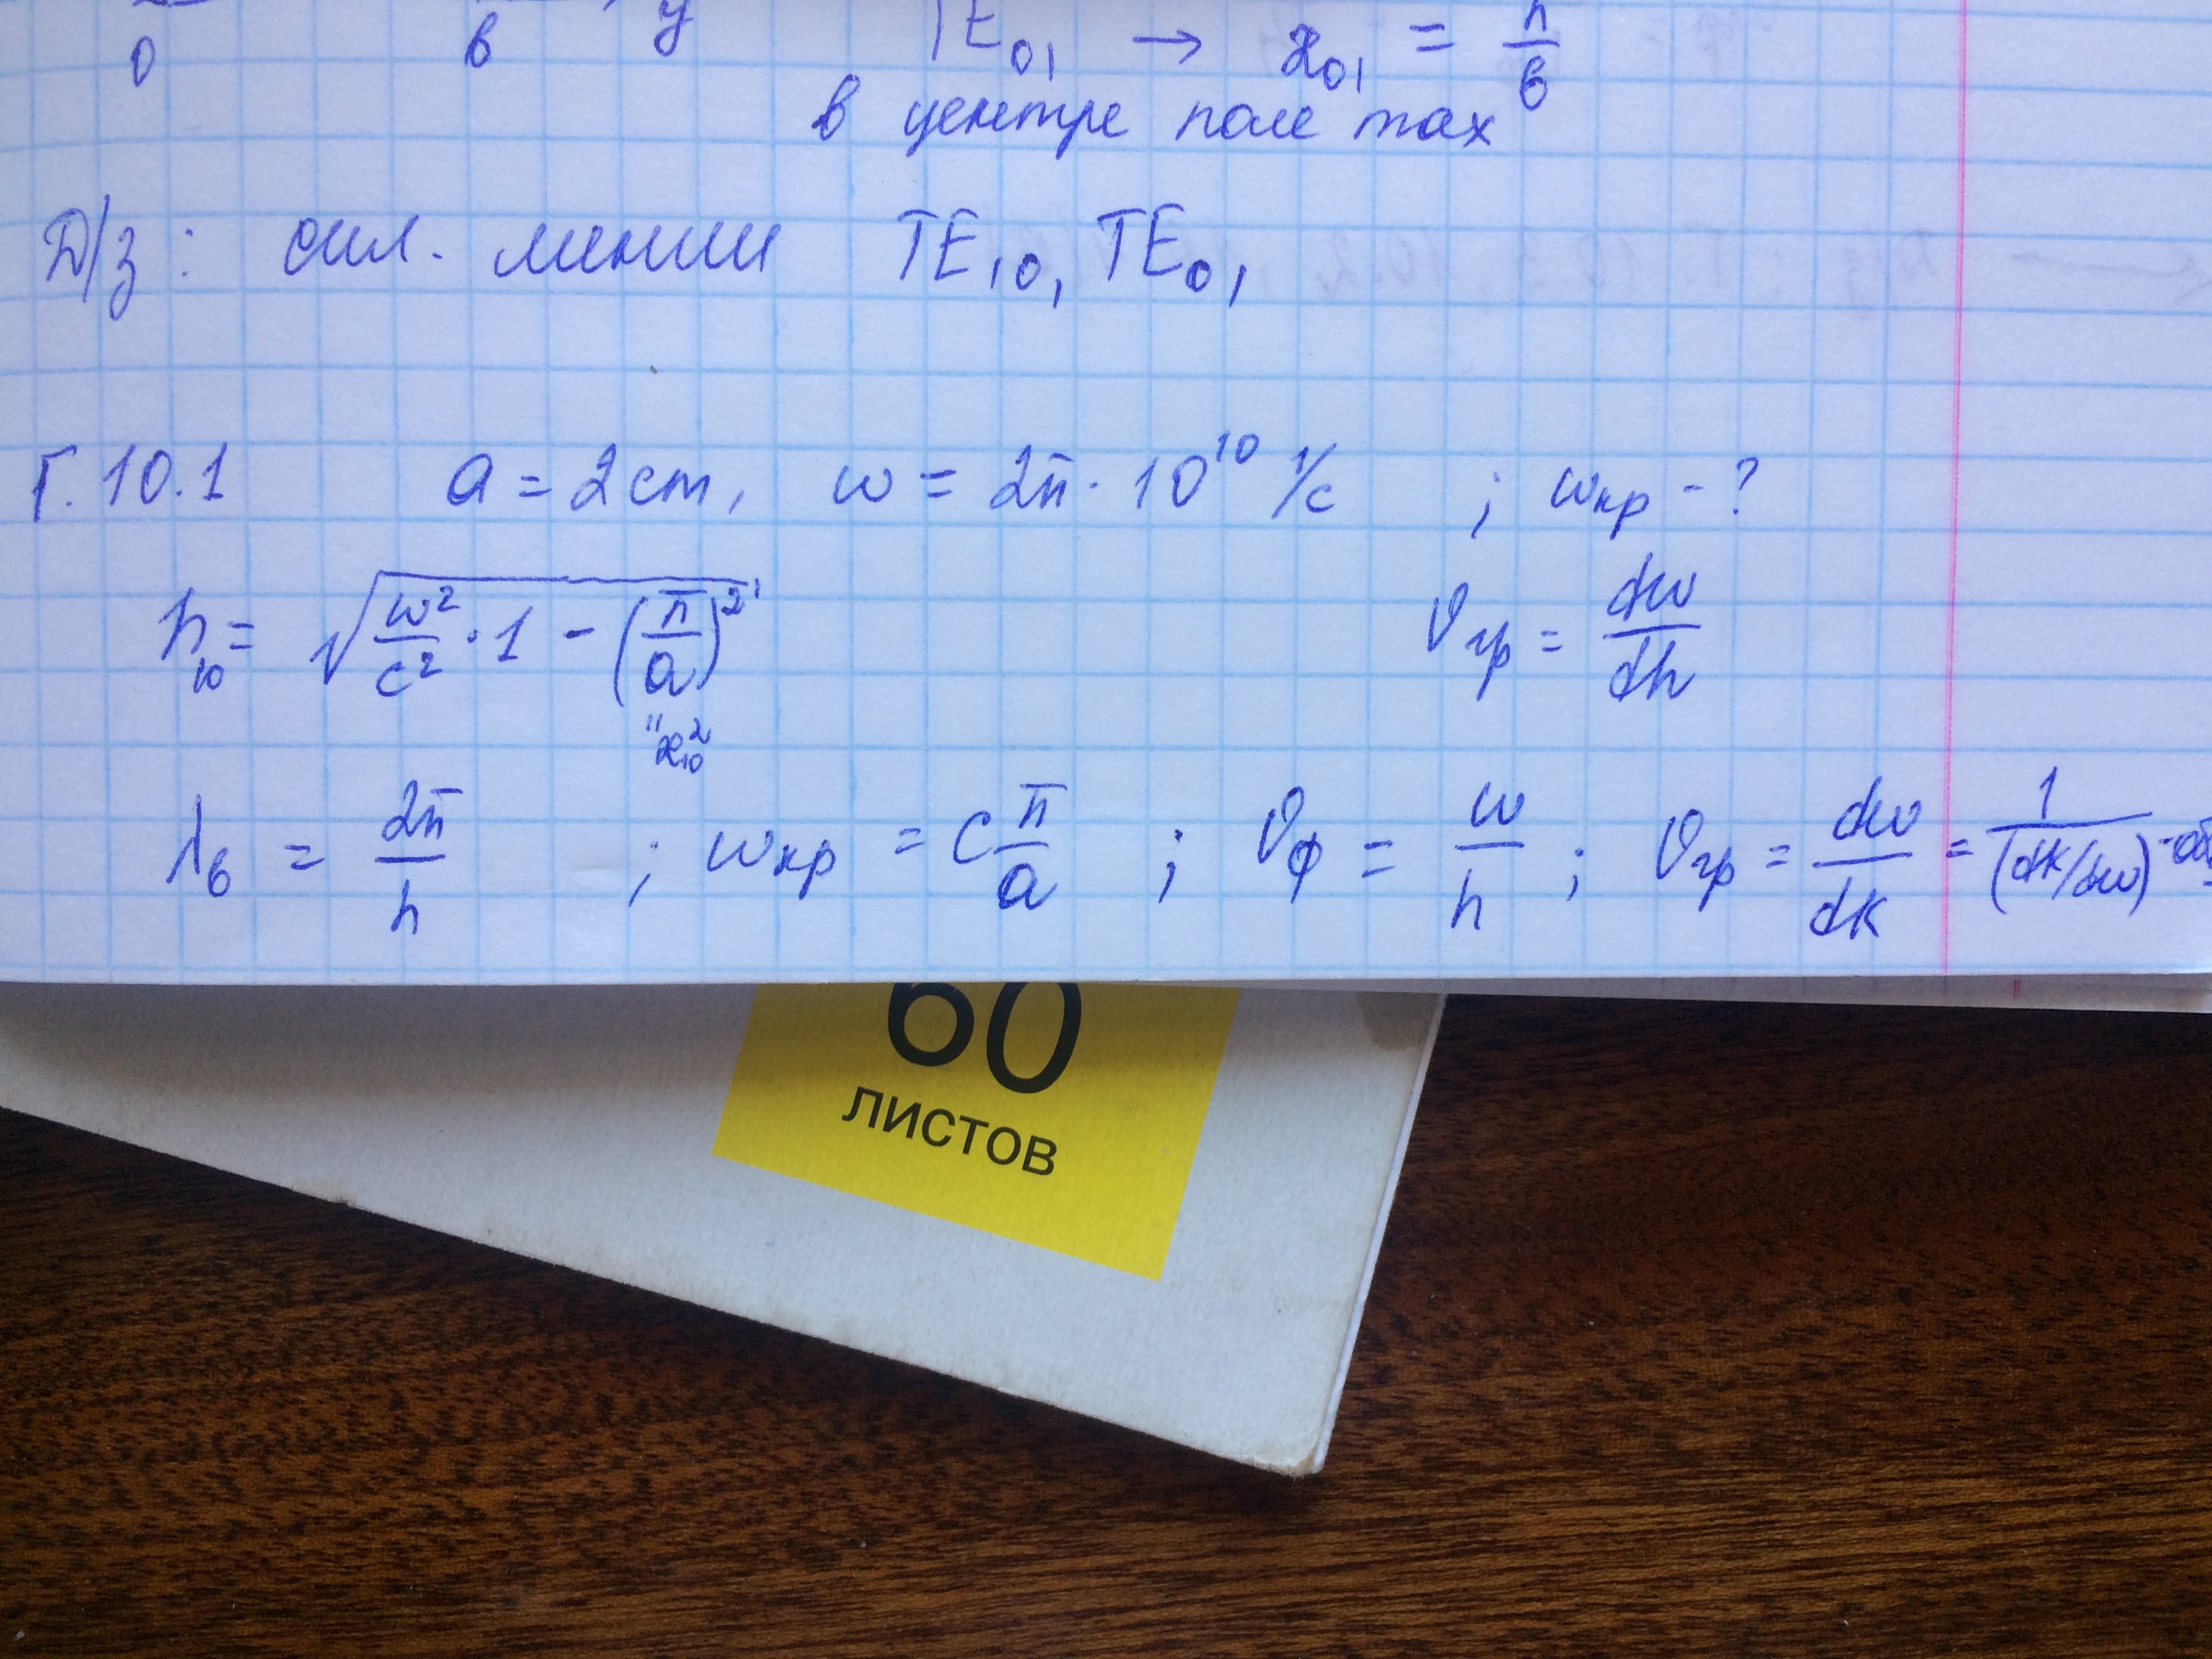 0 в y TE₀₁ → æ₀₁ = π/в
в центре поле max
Д/з: сил. линии TE₁₀, TE₀₁
Г. 10.1 a = 2 cm, ω = 2π · 10¹⁰ 1/с ; ωкр - ?
h₁₀ = √(ω²/c² · 1 - (π/a)²) vгр = dω/dh
" æ₁₀²
λв = 2π/h ; ωкр = c π/a ; vф = ω/h ; vгр = dω/dk = 1/(dk/dω)
60
ЛИСТОВ